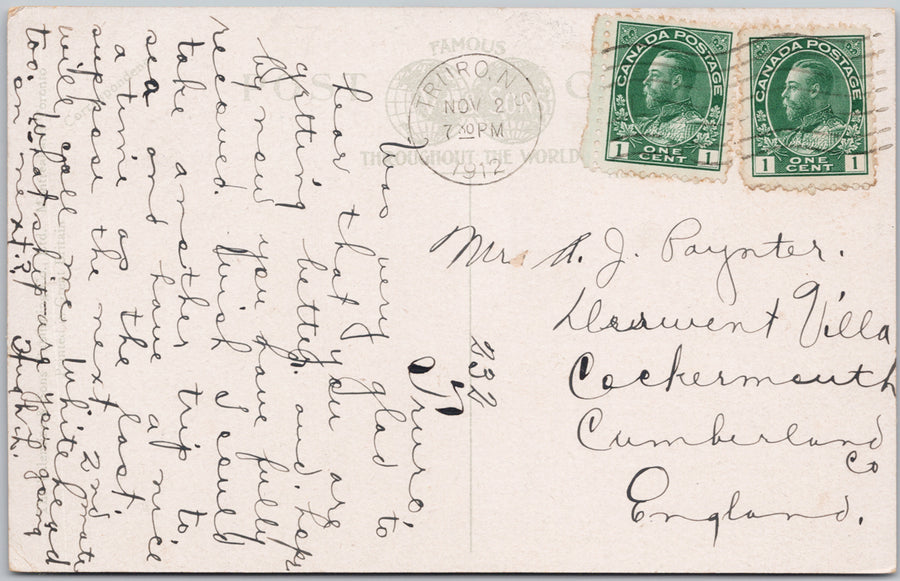 FAMOUS
POST C
THROUGHOUT THE WORLD
TRURO, N.S.
NOV 2
7 30 PM
1912
CANADA POSTAGE
1 ONE CENT 1
CANADA POSTAGE
1 ONE CENT 1
Mr. A. J. Paynter.
Derwent Villa
Cockermouth
Cumberland
Co
England.
232
Truro
Was very glad to
hear that you are
getting better and hope
by now you have fully
recovered. Wish I could
take another trip to
sea and have a nice
a time as the last
suppose the next 2nd mate
will call me Whitehead
too. What ship are you going
on next?
Hugh R.